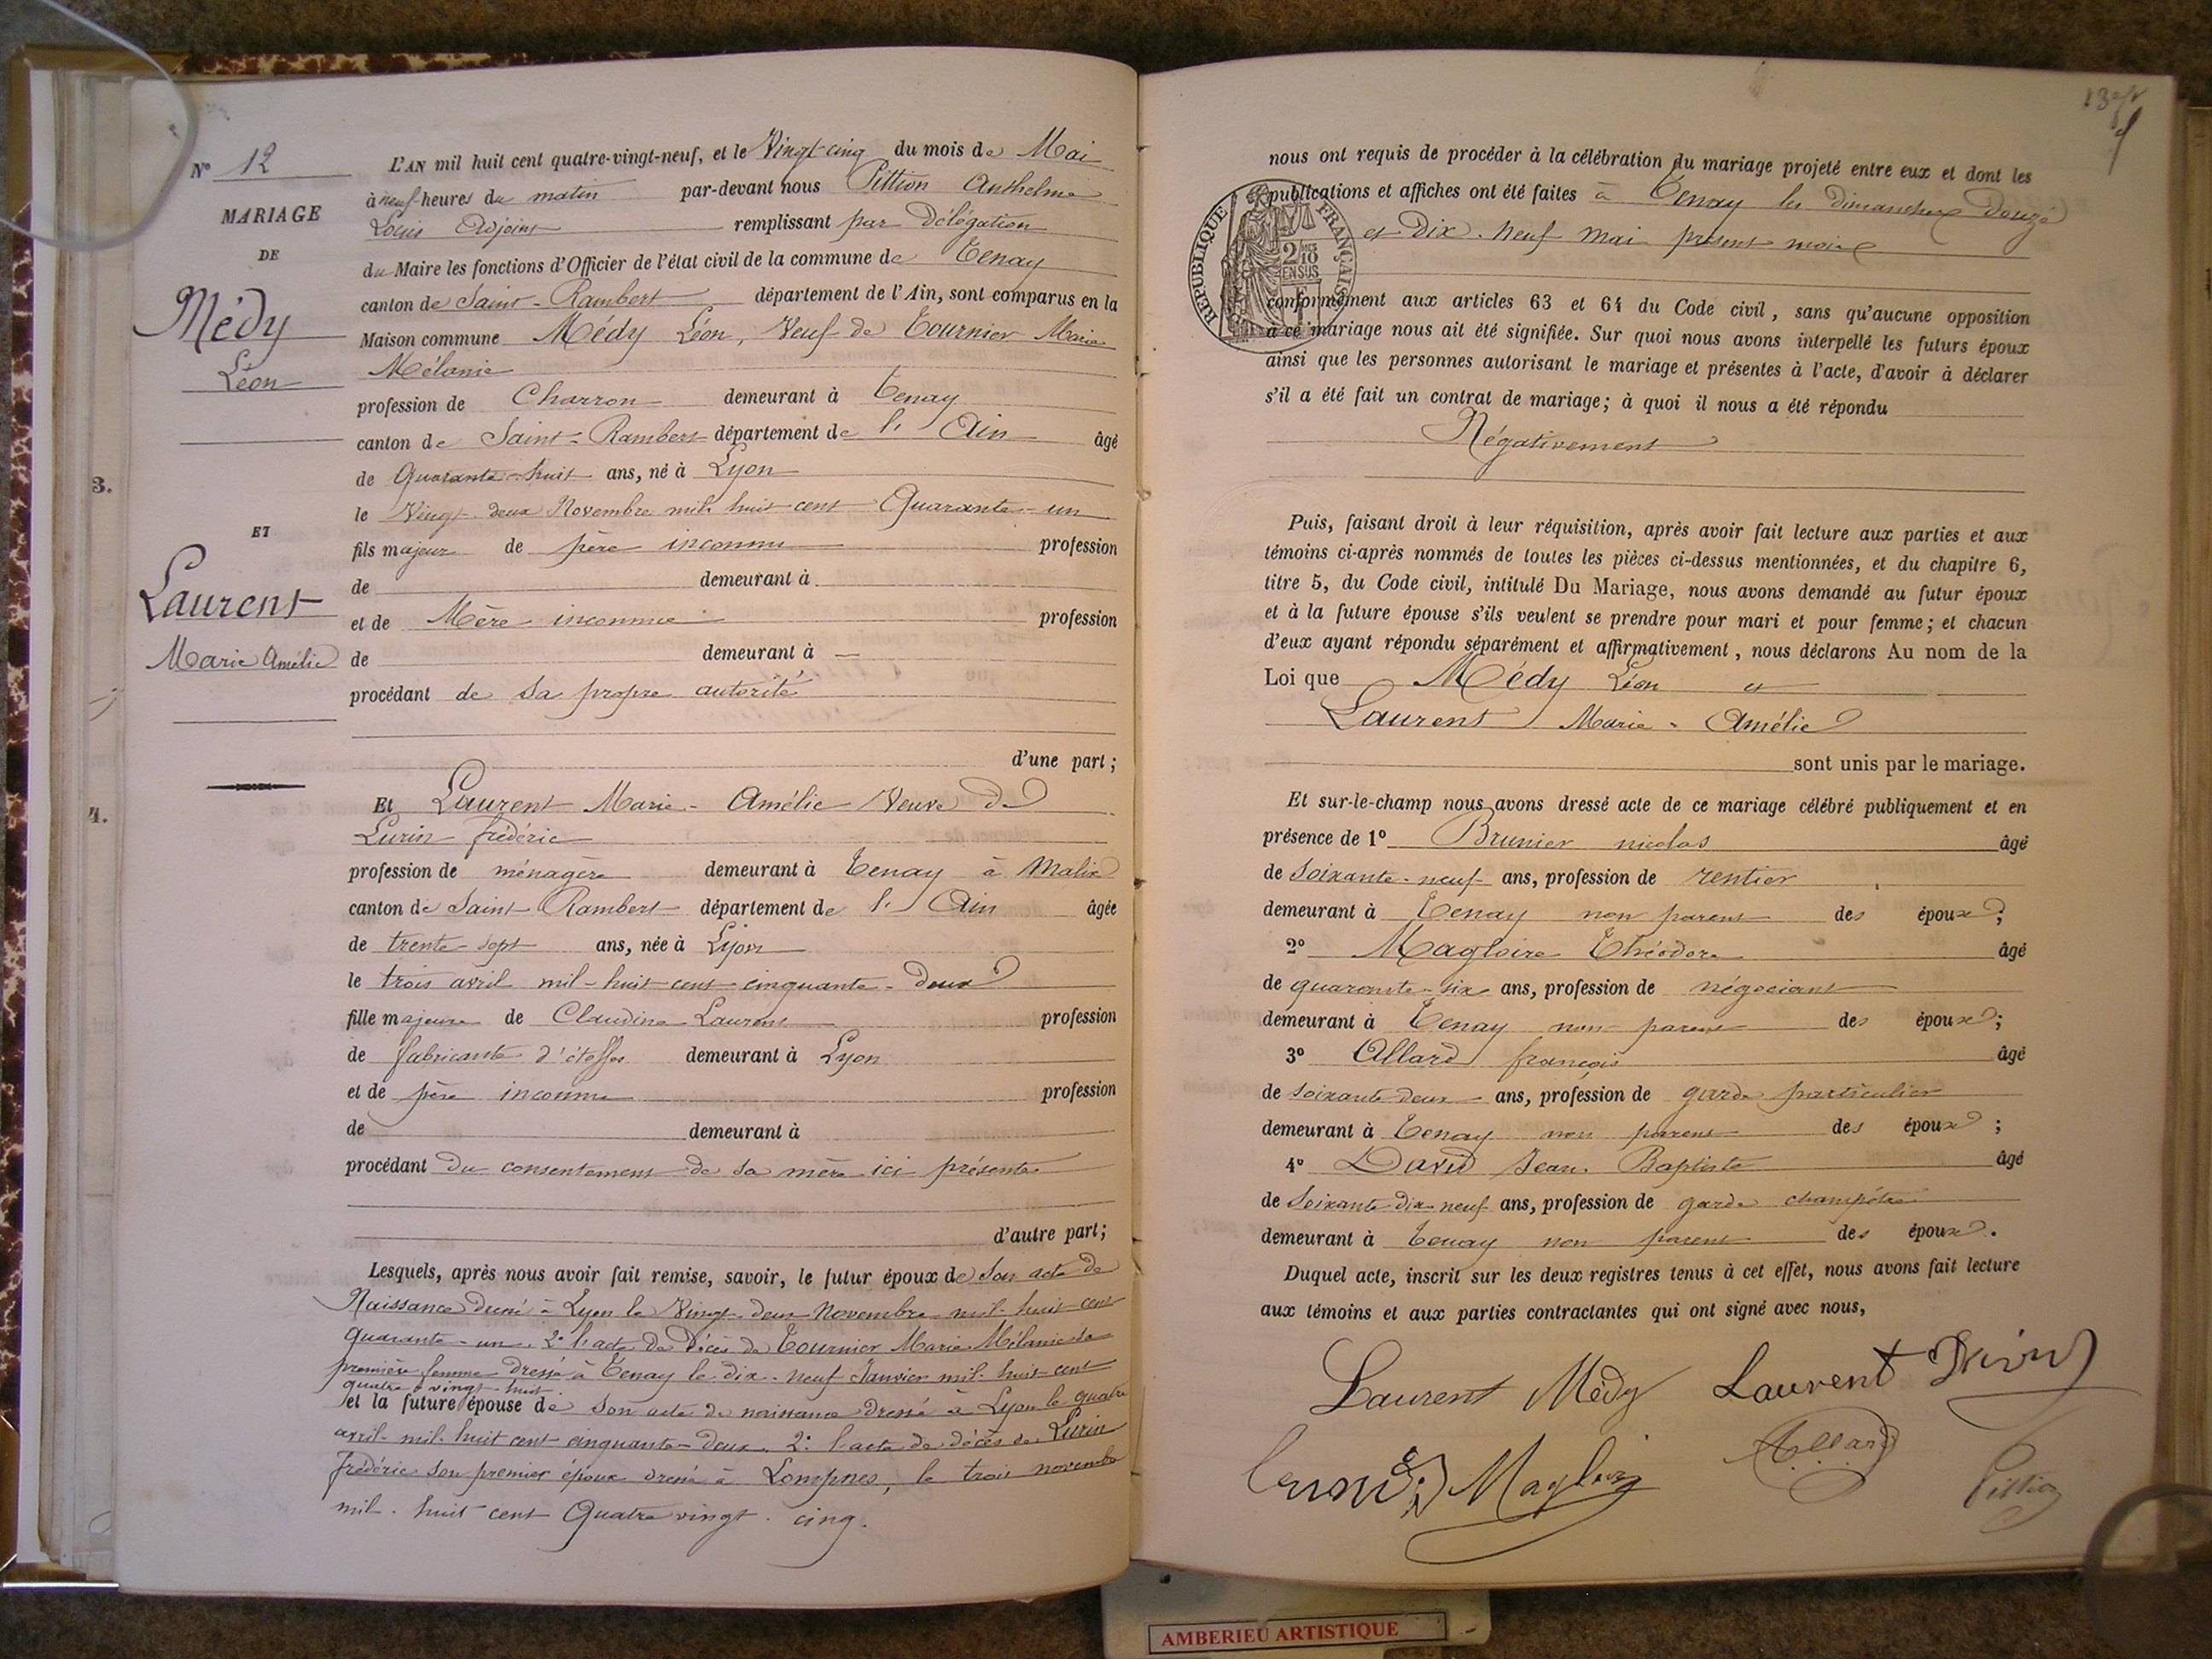 N° 12
MARIAGE
DE
Médy
Léon
ET
Laurent
Marie Amélie
3.
4.
L'AN mil huit cent quatre-vingt-neuf, et le Vingt-cinq du mois de Mai
à neuf heures du matin par-devant nous Pittion Anthelme
Louis Adjoint remplissant par Délégation
du Maire les fonctions d'Officier de l'état civil de la commune de Tenay
canton de Saint-Rambert département de l'Ain, sont comparus en la
Maison commune Médy Léon, Veuf de Tournier Marie
Mélanie
profession de Charron demeurant à Tenay
canton de Saint-Rambert département de l'Ain âgé
de Quarante-huit ans, né à Lyon
le Vingt-deux Novembre mil huit cent Quarante-un
fils majeur de père inconnu profession
de demeurant à
et de Mère inconnue profession
de demeurant à —
procédant de sa propre autorité
d'une part;
Et Laurent Marie-Amélie Veuve de
Lurin frédéric
profession de ménagère demeurant à Tenay à Malix
canton de Saint-Rambert département de l'Ain âgée
de trente-sept ans, née à Lyon
le trois avril mil-huit-cent-cinquante-deux
fille majeure de Claudine Laurent profession
de fabricante d'étoffes demeurant à Lyon
et de père inconnu profession
de demeurant à
procédant du consentement de sa mère ici présente
d'autre part;
Lesquels, après nous avoir fait remise, savoir, le futur époux de son acte de
Naissance dressé à Lyon le Vingt-deux Novembre mil-huit-cent
quarante-un. 2° l'acte de Décès de Tournier Marie Mélanie sa
première femme dressé à Tenay le dix-neuf Janvier mil-huit-cent
quatre vingt-huit
et la future épouse de son acte de naissance dressé à Lyon le quatre
avril mil huit cent cinquante-deux. 2° l'acte de décès de Lurin
frédéric son premier époux dressé à Lompnes, le trois novembre
mil huit cent Quatre vingt cinq.
nous ont requis de procéder à la célébration du mariage projeté entre eux et dont les
publications et affiches ont été faites à Tenay les dimanches Douze
et Dix-neuf mai présent mois
RÉPUBLIQUE FRANÇAISE
conformément aux articles 63 et 64 du Code civil, sans qu'aucune opposition
à ce mariage nous ait été signifiée. Sur quoi nous avons interpellé les futurs époux
ainsi que les personnes autorisant le mariage et présentes à l'acte, d'avoir à déclarer
s'il a été fait un contrat de mariage; à quoi il nous a été répondu
Négativement
Puis, faisant droit à leur réquisition, après avoir fait lecture aux parties et aux
témoins ci-après nommés de toutes les pièces ci-dessus mentionnées, et du chapitre 6,
titre 5, du Code civil, intitulé Du Mariage, nous avons demandé au futur époux
et à la future épouse s'ils veulent se prendre pour mari et pour femme; et chacun
d'eux ayant répondu séparément et affirmativement, nous déclarons Au nom de la
Loi que Médy Léon et
Laurent Marie-Amélie
sont unis par le mariage.
Et sur-le-champ nous avons dressé acte de ce mariage célébré publiquement et en
présence de 1° Brunier nicolas âgé
de soixante-neuf ans, profession de rentier
demeurant à Tenay non parent des époux;
2° Magloire Théodore âgé
de quarante-six ans, profession de négociant
demeurant à Tenay non parent des époux;
3° Allard françois âgé
de soixante deux ans, profession de garde particulier
demeurant à Tenay non parent des époux;
4° David Jean Baptiste âgé
de soixante dix neuf ans, profession de garde champêtre
demeurant à Tenay non parent des époux.
Duquel acte, inscrit sur les deux registres tenus à cet effet, nous avons fait lecture
aux témoins et aux parties contractantes qui ont signé avec nous,
Laurent Médy Laurent
Allard
Pittion
AMBERIEU ARTISTIQUE